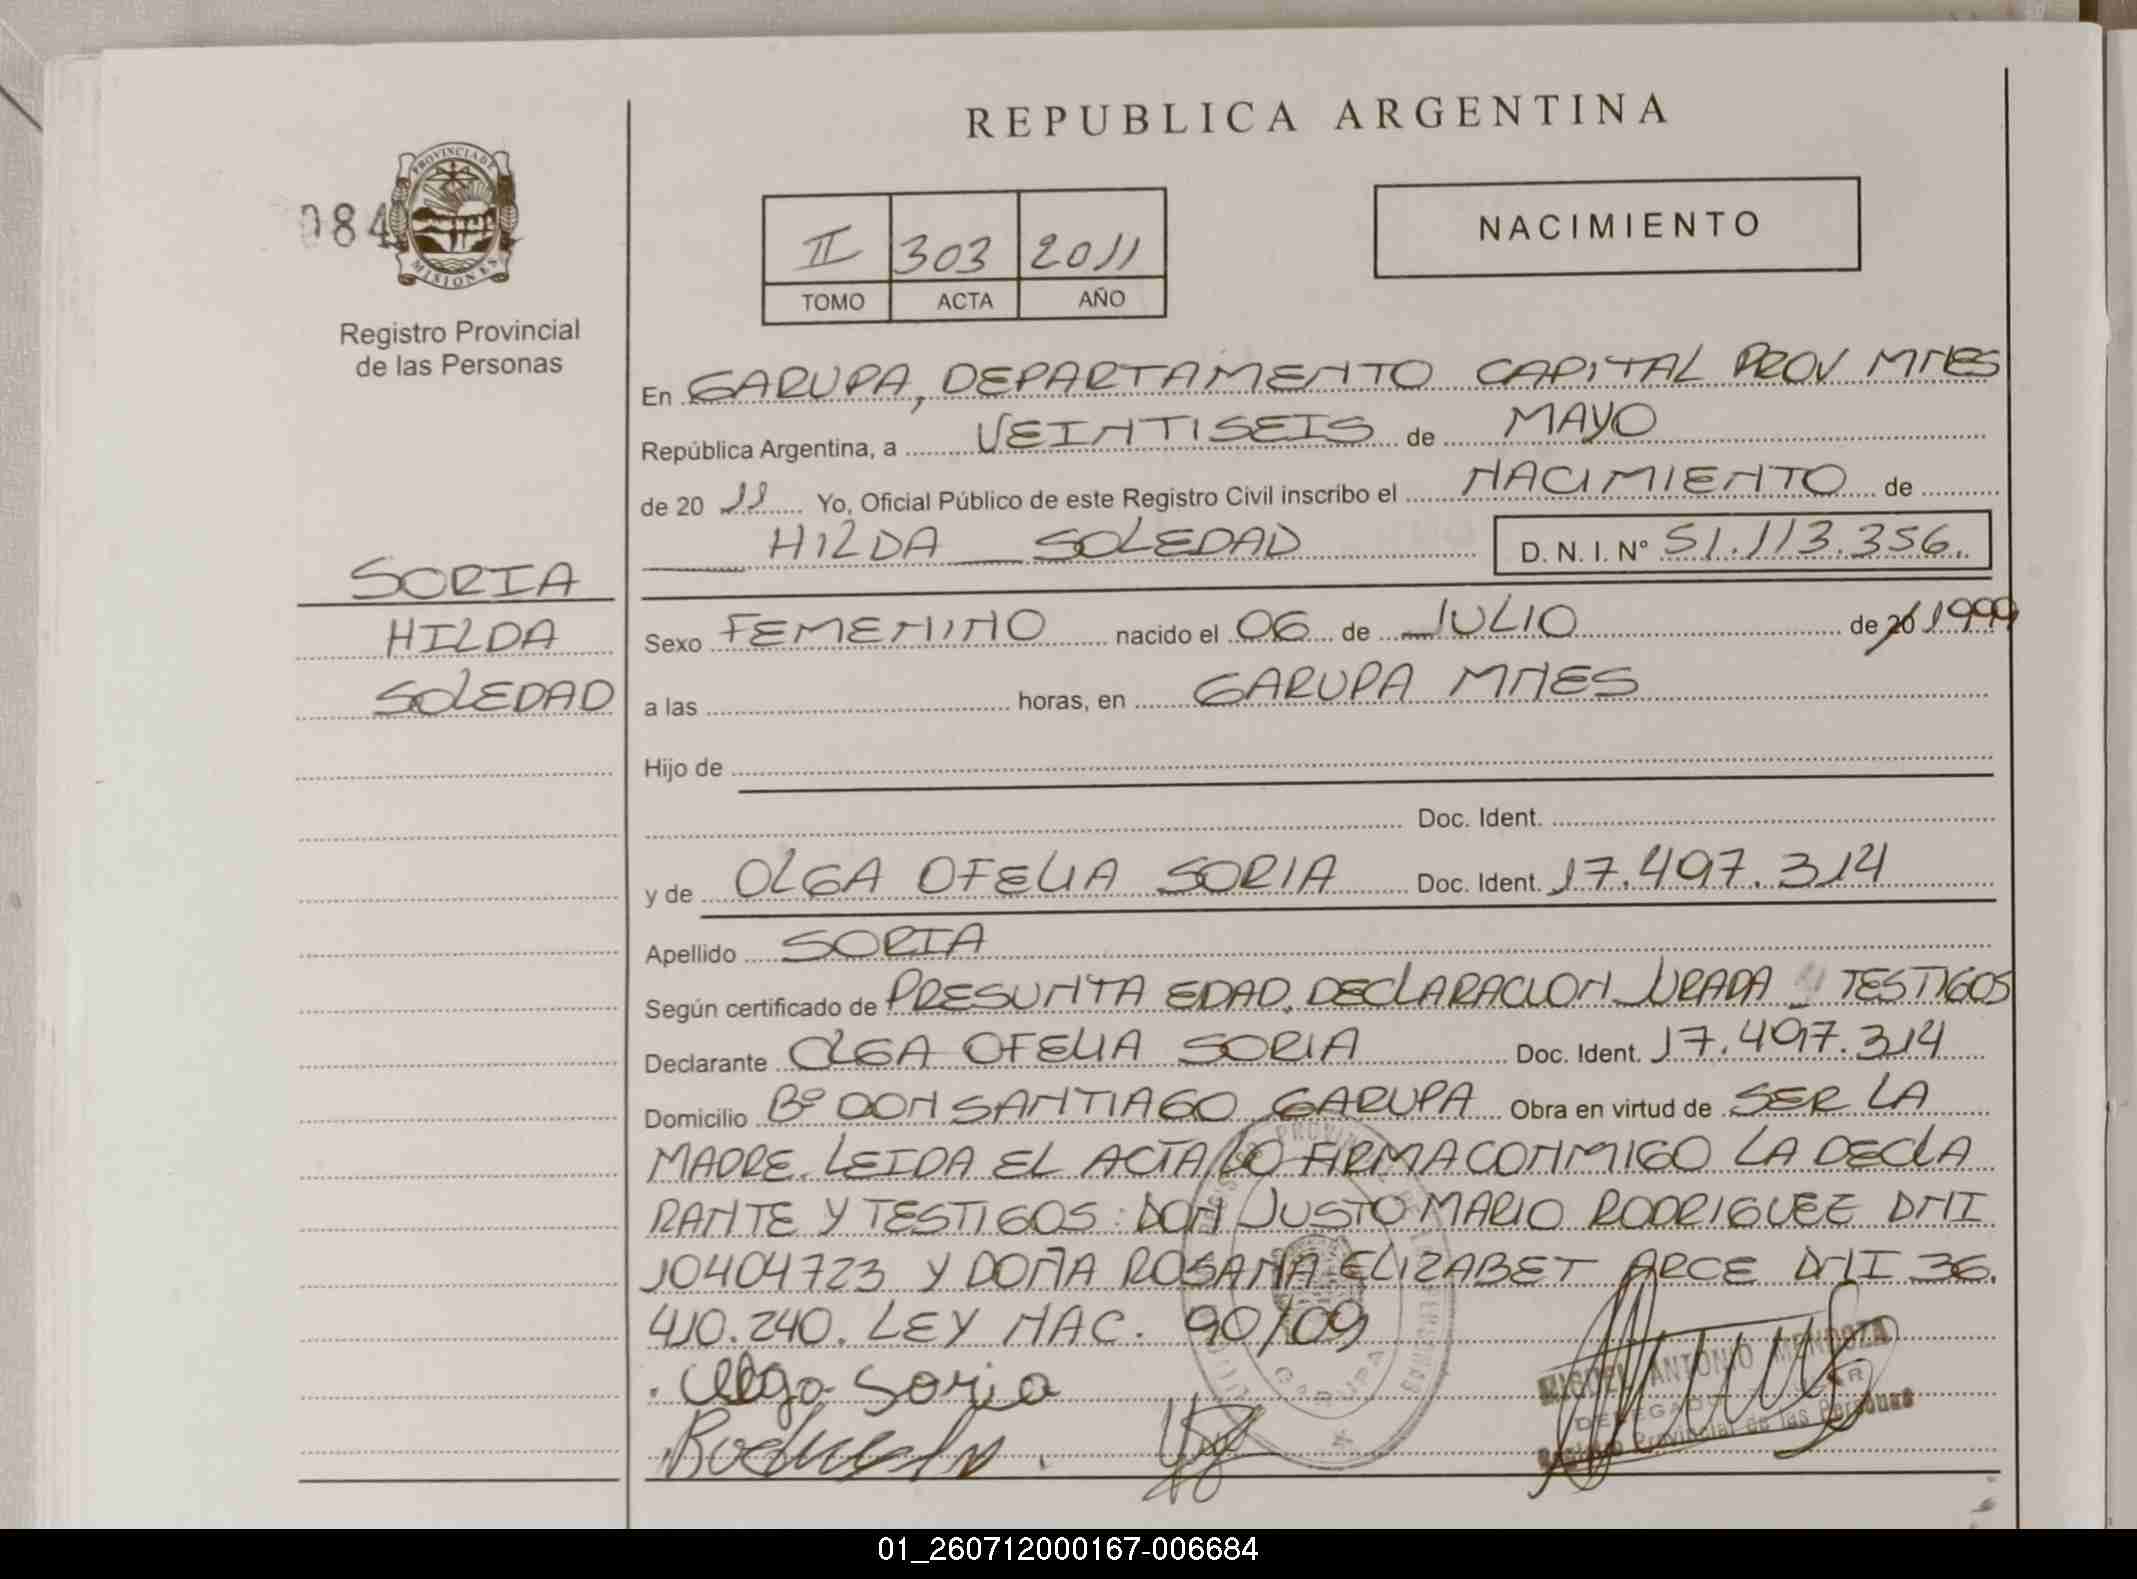 REPUBLICA ARGENTINA
084
PROVINCIA DE
MISIONES
Registro Provincial
de las Personas
II 303 2011
TOMO ACTA AÑO
NACIMIENTO
En GARUPA, DEPARTAMENTO CAPITAL PROV MNES
República Argentina, a VEINTISEIS de MAYO
de 20 11 Yo, Oficial Público de este Registro Civil inscribo el NACIMIENTO de
HILDA SOLEDAD D. N. I. Nº 51.113.356.
SORIA
HILDA
SOLEDAD
Sexo FEMENINO nacido el 06 de JULIO de 20 1999
a las horas, en GARUPA MNES
Hijo de
Doc. Ident.
y de OLGA OFELIA SORIA Doc. Ident. 17.497.314
Apellido SORIA
Según certificado de PRESUNTA EDAD, DECLARACION JURADA Y TESTIGOS
Declarante OLGA OFELIA SORIA Doc. Ident. 17.497.314
Domicilio Bº DON SANTIAGO GARUPA Obra en virtud de SER LA
MADRE. LEIDA EL ACTA LO FIRMA CONMIGO LA DECLA
RANTE Y TESTIGOS: DON JUSTO MARIO RODRIGUEZ DNI
10404723 Y DOÑA ROSANA ELIZABET ARCE DNI 36.
410.240. LEY NAC. 90/09
Olga Soria
GARUPA
MIGUEL ANTONIO MENDOZA
DELEGADO TITULAR
Registro Provincial de las Personas
01_260712000167-006684